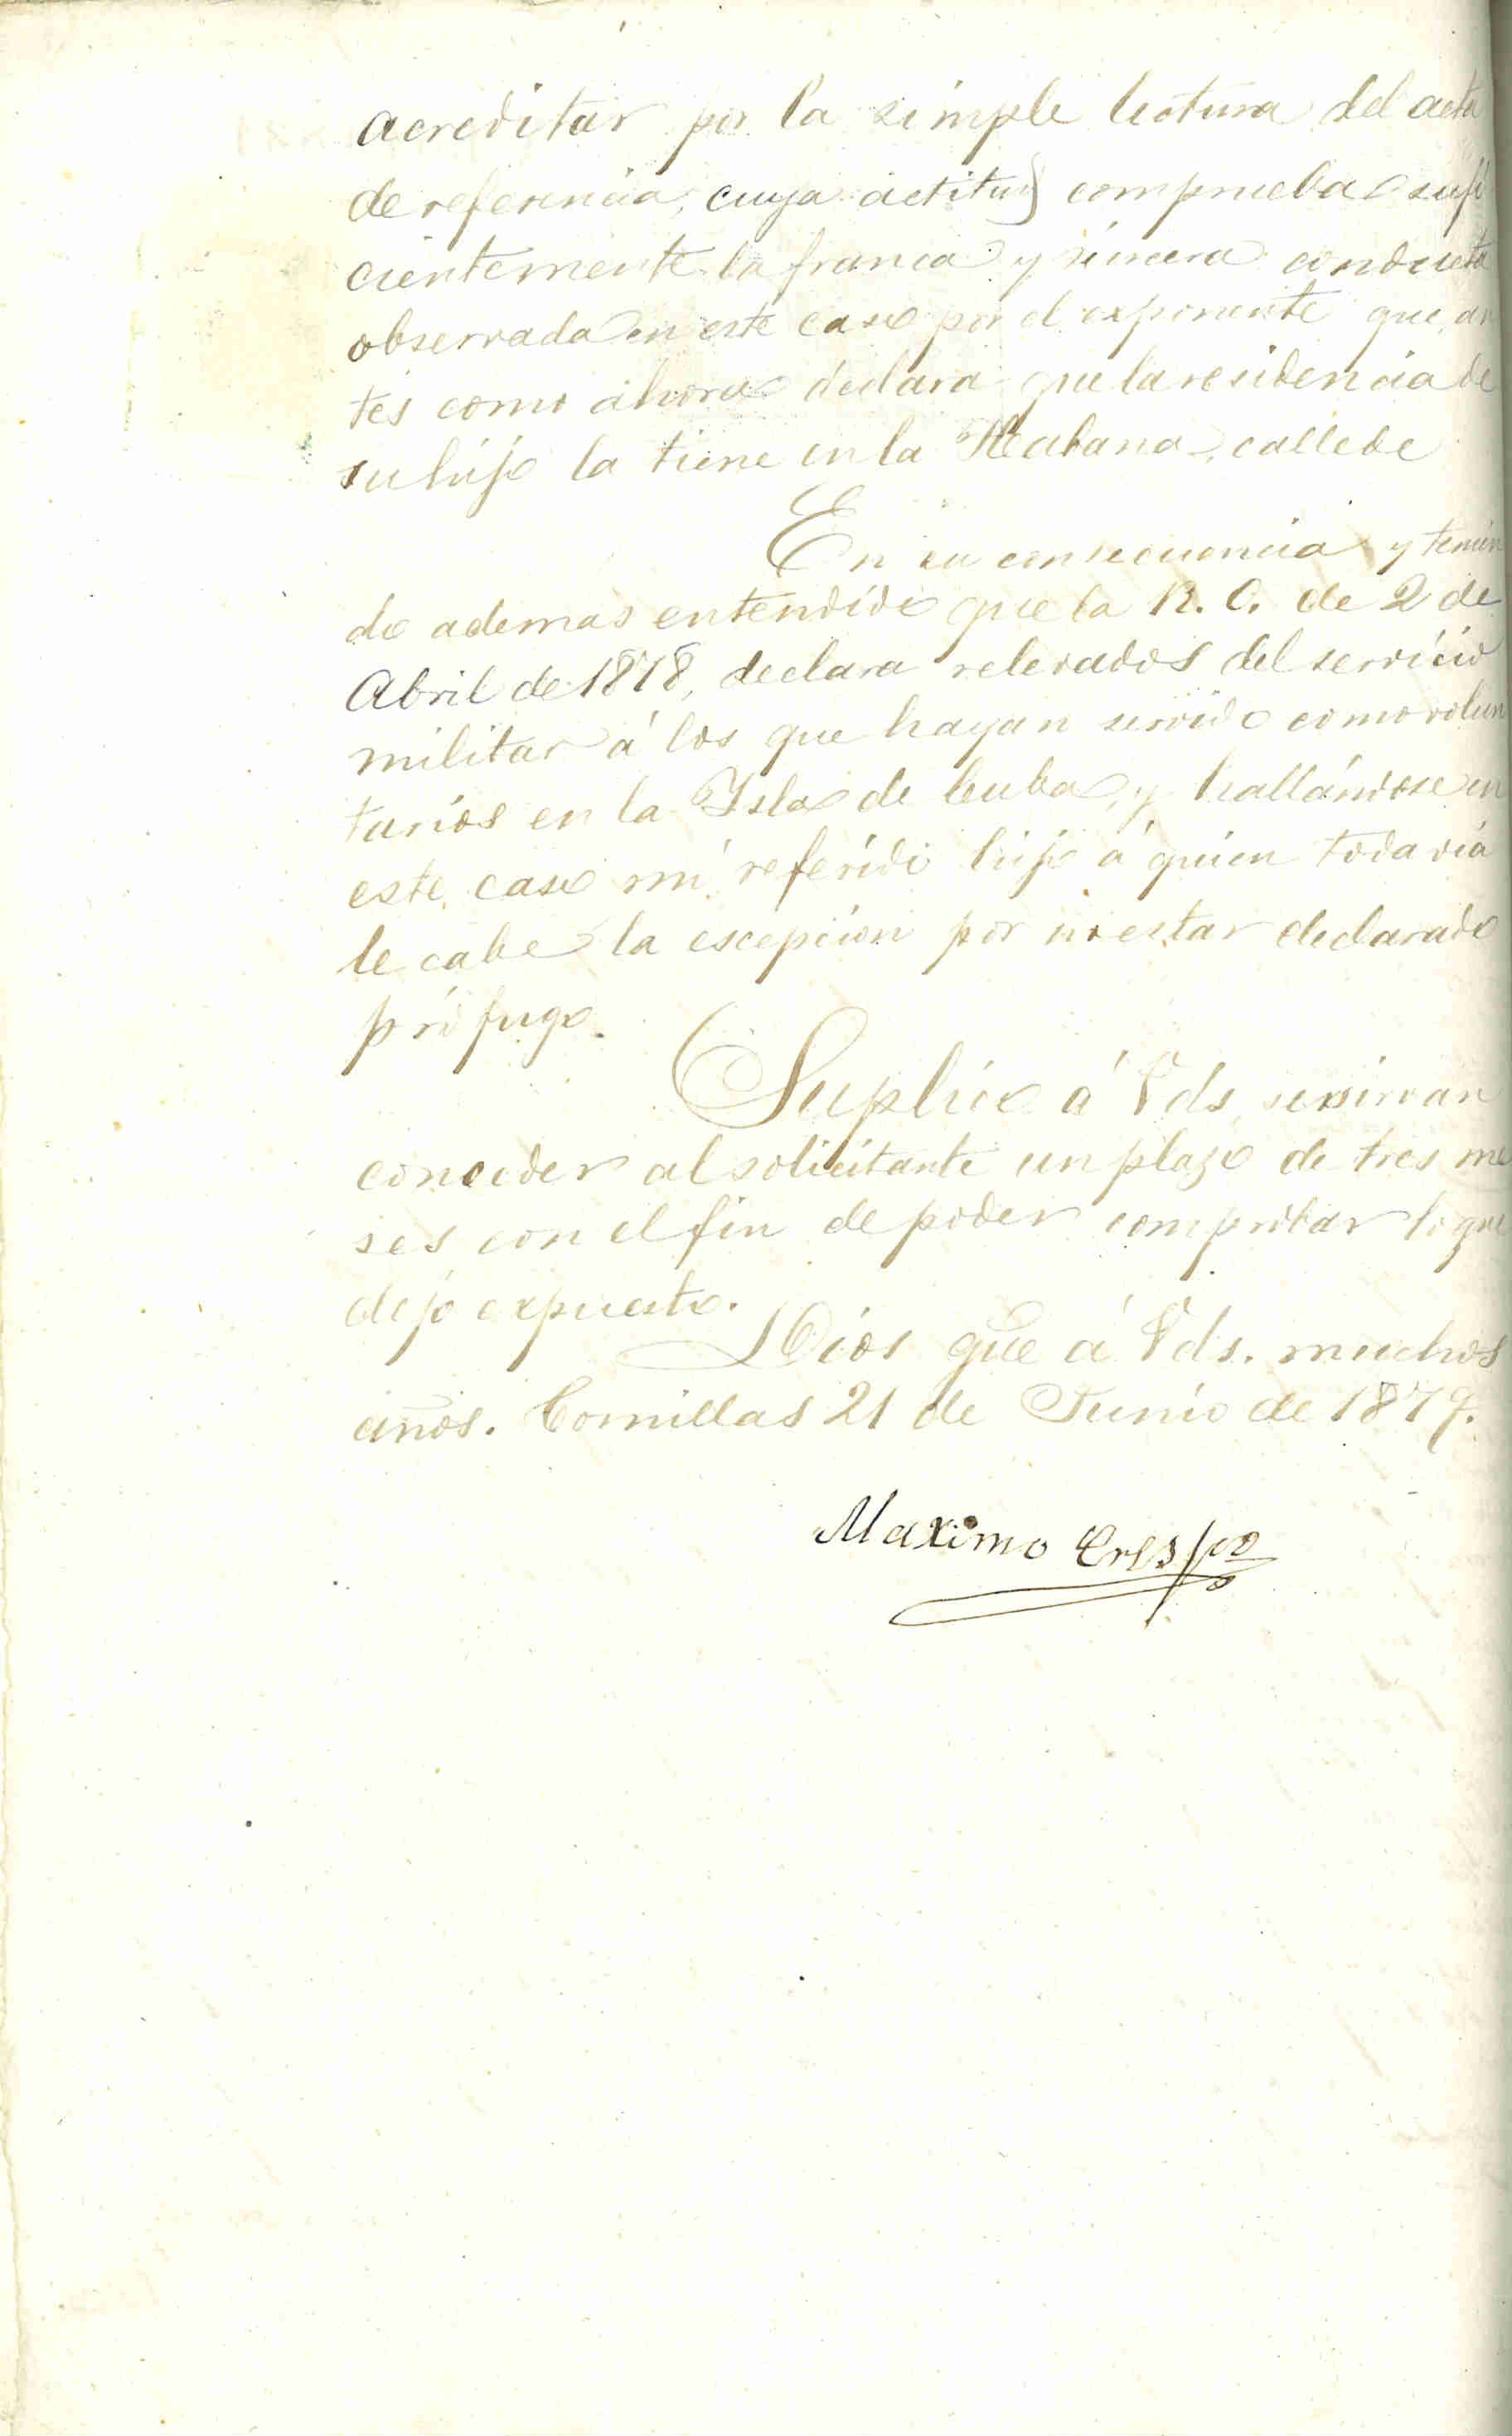 acreditar por la simple lectura del acta
de referencia, cuya actitud comprueba sufi
cientemente la franca y sincera conducta
observada en este caso por el exponente que an
tes como ahora declara que la residencia de
su hijo la tiene en la Habana, calle de
En su consecuencia y tenien
do ademas entendido que la R. O. de 2 de
Abril de 1878, declara relevados del servicio
militar á los que hayan servido como volun
tarios en la Isla de Cuba, y hallándose en
este caso mi referido hijo á quien todavia
le cabe la escepcion por no estar declarado
prófugo.
Suplico á Vds. se sirvan
conceder al solicitante un plazo de tres me
ses con el fin de poder comprobar lo que
dejo expuesto.
Dios gue á Vds. muchos
años. Comillas 21 de Junio de 1879.
Maximo Crespo